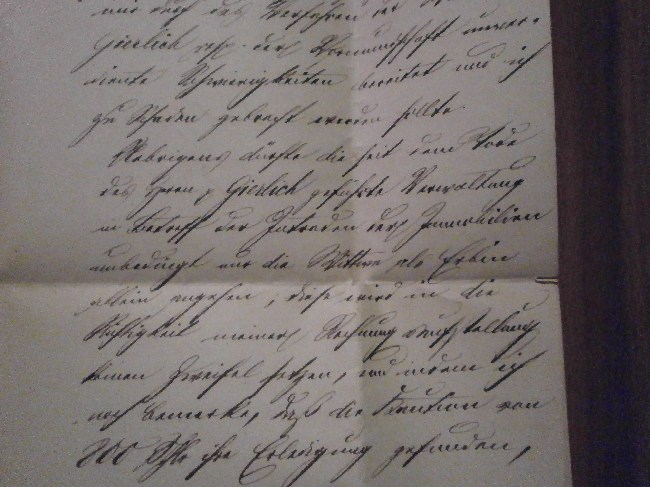 nur durch das Verfahren der
Gierlich resp. der Vormundschaft unver-
diente Schwierigkeiten bereitet und ich
zu Schaden gebracht werden sollte.
Uebrigens dürfte die seit dem Tode
des Herrn p Gierlich geführte Verwaltung
in Betreff der Intraden des Immobilien
unbedingt nur die Wittwe als Erbin
allein angehen, diese wird in die
Richtigkeit meiner Rechnungsaufstellung
keinen Zweifel setzen, und indem ich
noch bemerke, daß die Kaution von
800 Thlr ihre Erledigung gefunden,